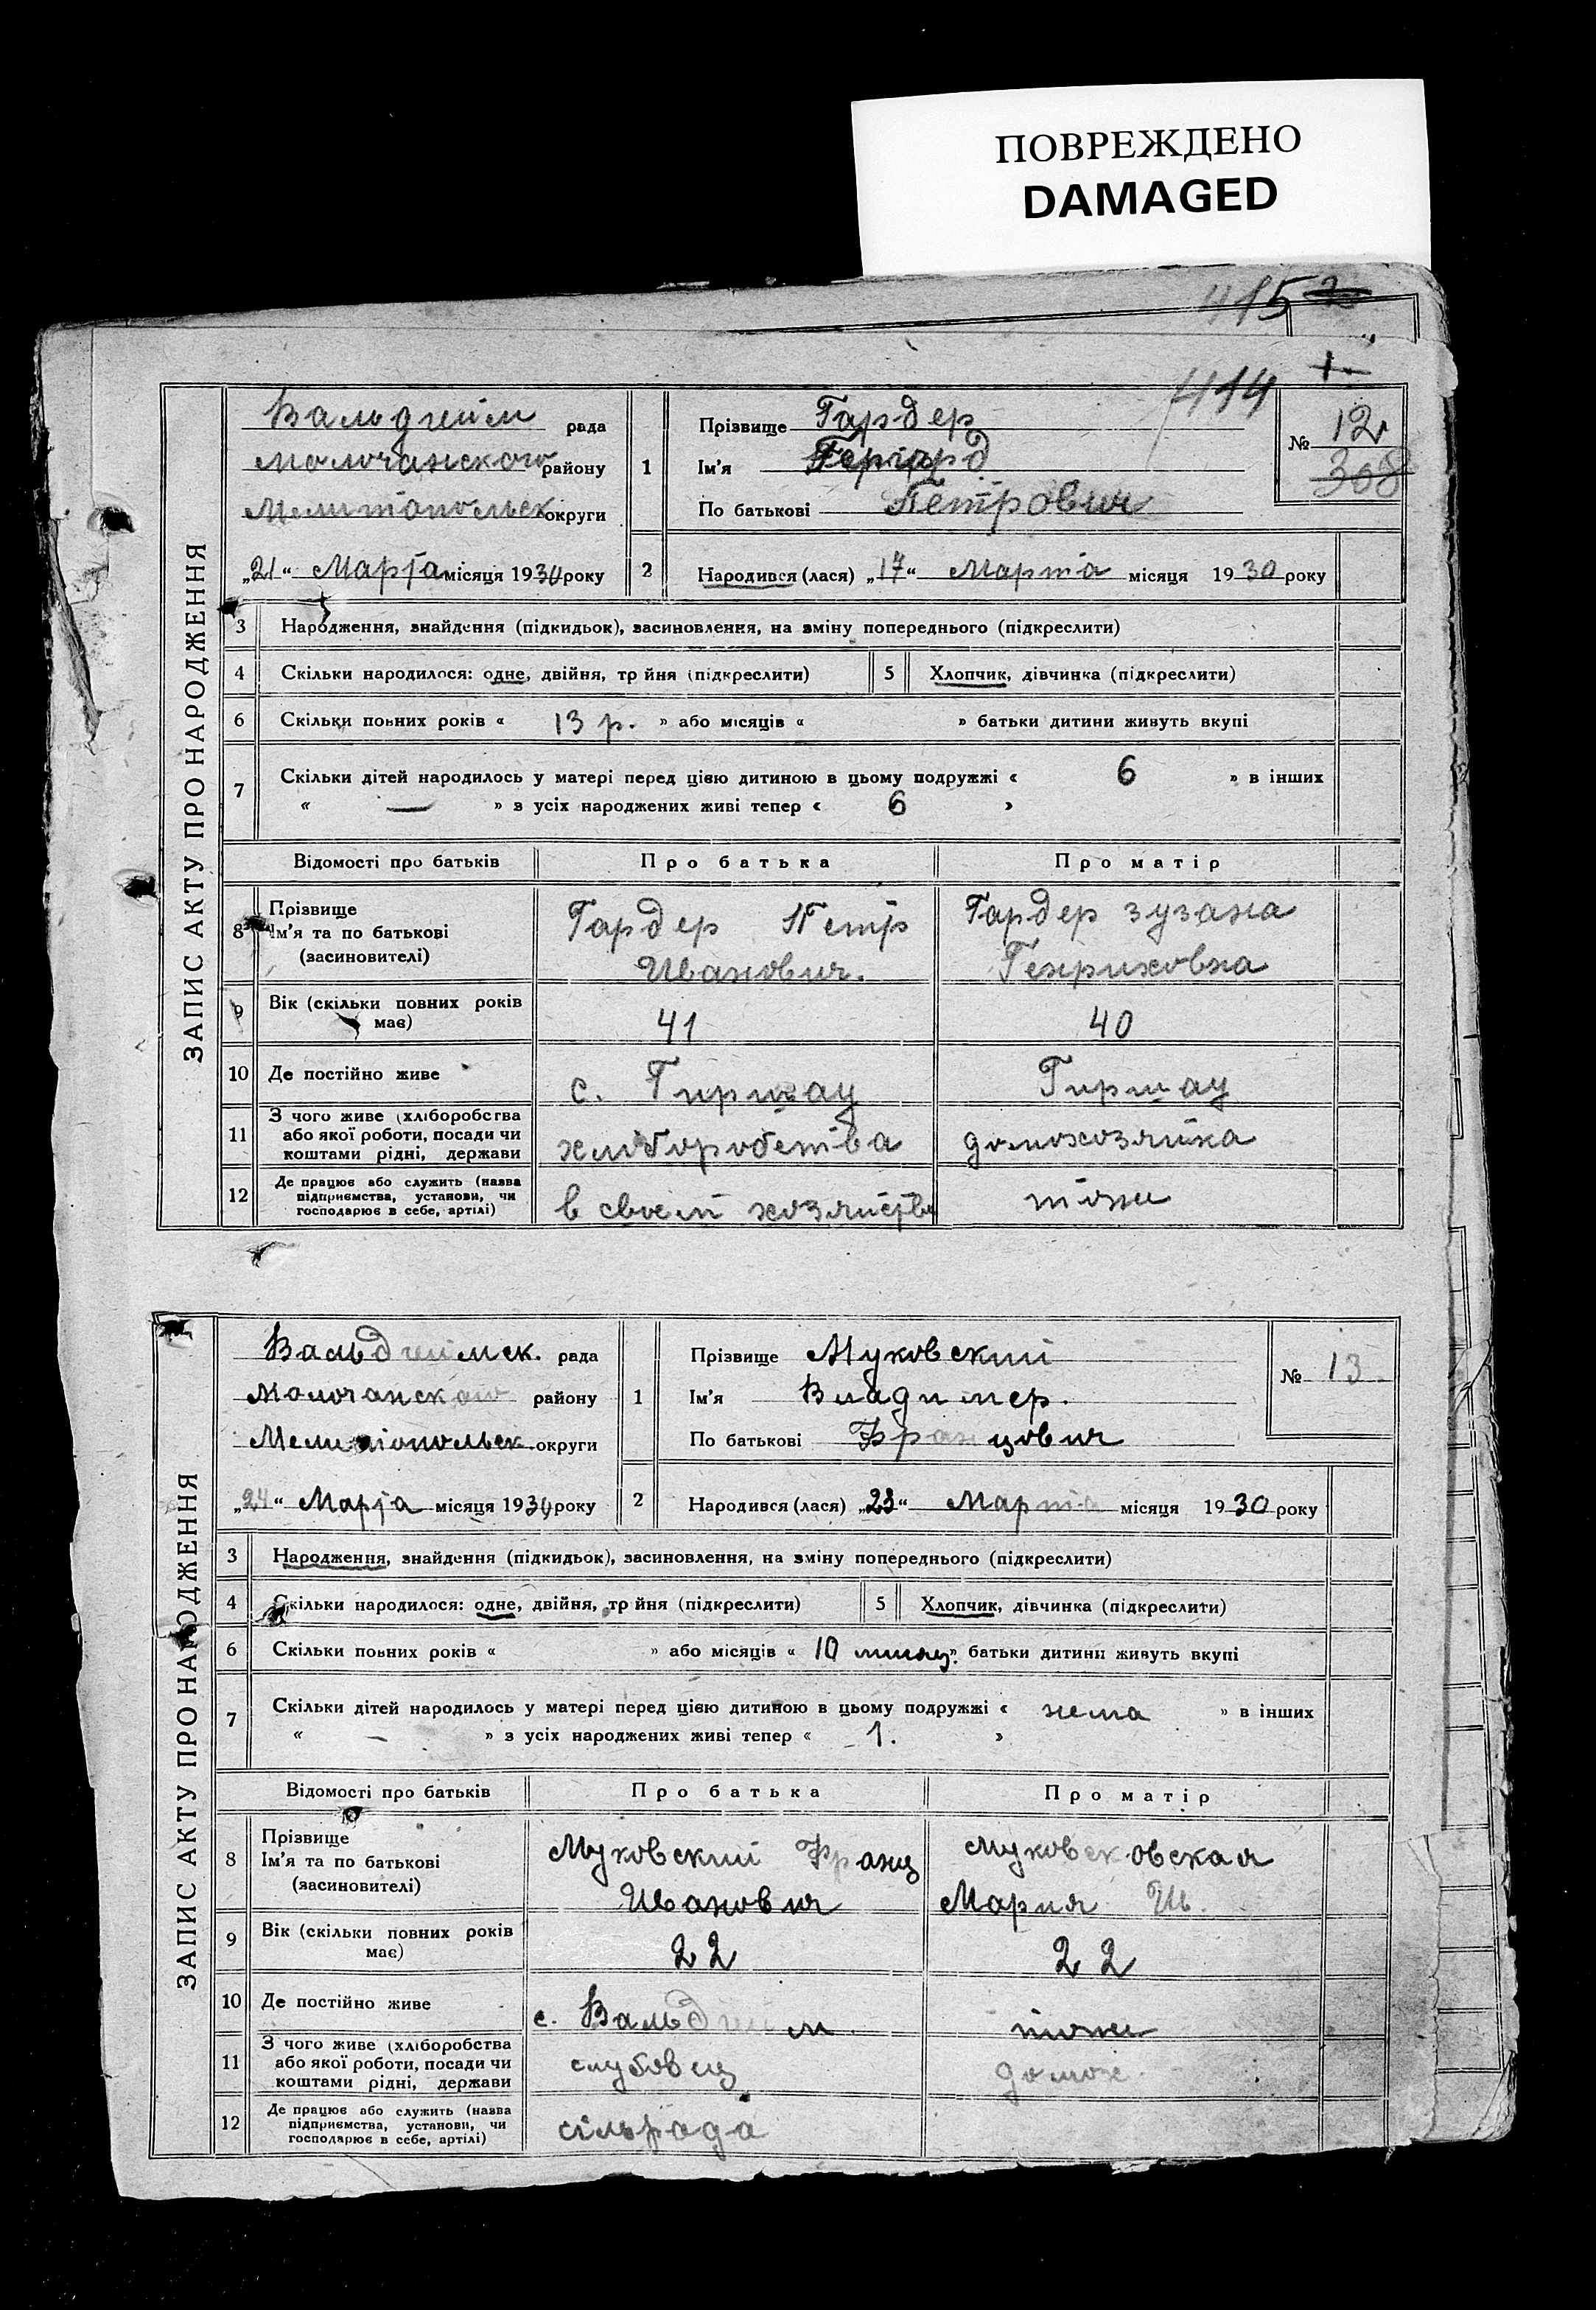 ПОВРЕЖДЕНО
DAMAGED
415
414
ЗАПИС АКТУ ПРО НАРОДЖЕННЯ
Вальдгейм рада
Молочанского району
Мелитопольск округи
„21“ Марта місяця 1930 року
1 Прізвище Гардер
Ім'я Гергард
По батькові Петрович
№ 12
308
2 Народився (лася) „17“ Марта місяця 1930 року
3 Народження, знайдення (підкидьок), засиновлення, на зміну попереднього (підкреслити)
4 Скільки народилося: одне, двійня, тр йня (підкреслити) 5 Хлопчик, дівчинка (підкреслити)
6 Скільки повних років « 13 р. » або місяців « » батьки дитини живуть вкупі
7 Скільки дітей народилось у матері перед цією дитиною в цьому подружжі « 6 » в інших
« — » з усіх народжених живі тепер « 6 »
Відомості про батьків Про батька Про матір
8 Прізвище Ім'я та по батькові (засиновителі) Гардер Петр Иванович. Гардер Зузана Генриховна
9 Вік (скільки повних років має) 41 40
10 Де постійно живе с. Гиршау Гиршау
11 З чого живе (хліборобства або якої роботи, посади чи коштами рідні, держави хліборобства домохозяйка
12 Де працює або служить (назва підприємства, установи, чи господарює в себе, артілі) в своем хозяйстве тоже
ЗАПИС АКТУ ПРО НАРОДЖЕННЯ
Вальдгеймск. рада
Молочанского району
Мелитопольск. округи
„24“ Марта місяця 1930 року
1 Прізвище Муковский
Ім'я Владимер.
По батькові Францович
№ 13
2 Народився (лася) „23“ Марта місяця 1930 року
3 Народження, знайдення (підкидьок), засиновлення, на зміну попереднього (підкреслити)
4 Скільки народилося: одне, двійня, тр йня (підкреслити) 5 Хлопчик, дівчинка (підкреслити)
6 Скільки повних років « » або місяців « 10 » батьки дитини живуть вкупі
7 Скільки дітей народилось у матері перед цією дитиною в цьому подружжі « нема » в інших
« – » з усіх народжених живі тепер « 1. »
Відомості про батьків Про батька Про матір
8 Прізвище Ім'я та по батькові (засиновителі) Муковский Франц Иванович Муковсковская Мария И.
9 Вік (скільки повних років має) 22 22
10 Де постійно живе с. Вальдгейм тоже
11 З чого живе (хліборобства або якої роботи, посади чи коштами рідні, держави домох.
12 Де працює або служить (назва підприємства, установи, чи господарює в себе, артілі) сільрада